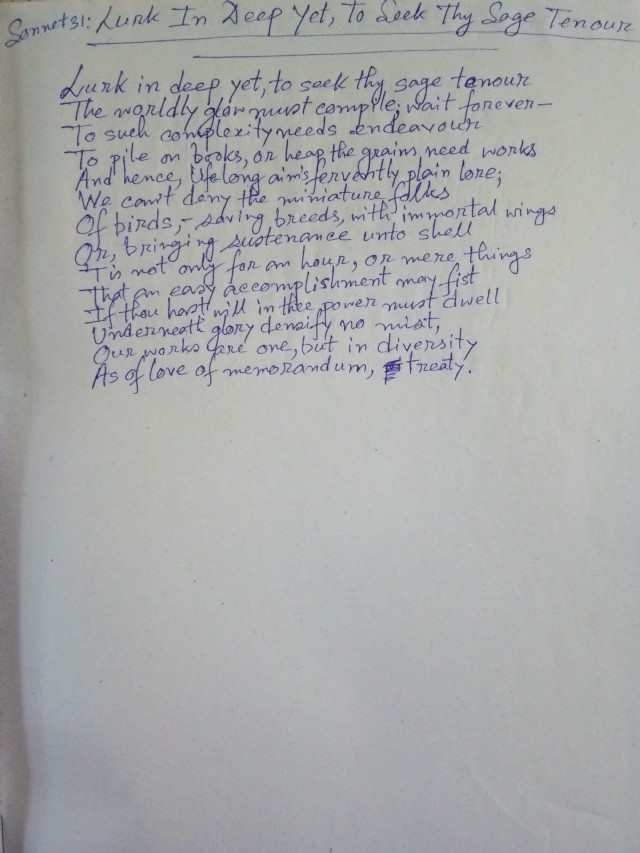 Sonnet 31: Lurk In Deep Yet, To Seek Thy Sage Tenour
Lurk in deep yet, to seek thy sage tenour
The worldly glow must compile; wait forever—
To such complexity needs endeavour
To pile on books, or heap the grains need works
And hence, lifelong aim's fervently plain lore;
We can't deny the miniature folks
Of birds,- saving breeds, with immortal wings
Or, bringing sustenance unto shell
'Tis not only for an hour, or mere things
That an easy accomplishment may fist
If thou hast will in thee power must dwell
Underneath glory densify no mist,
Our works are one, but in diversity
As of love of memorandum, treaty.